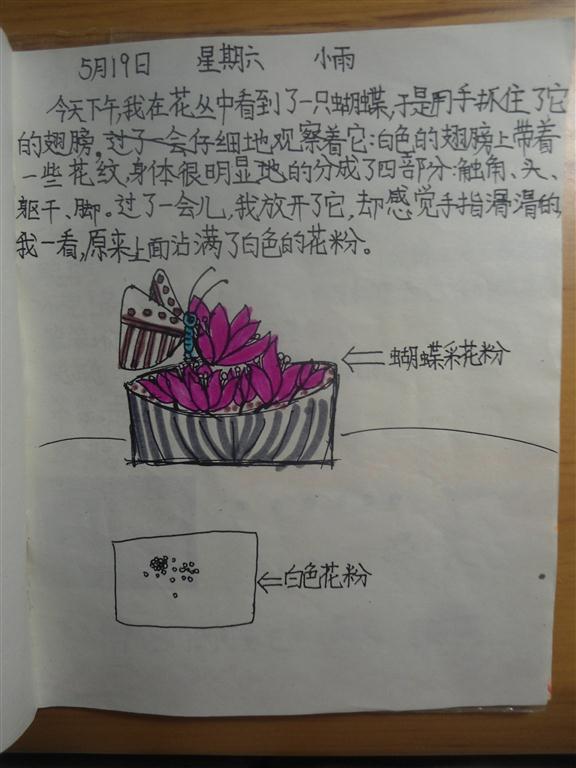 5月19日 星期六 小雨
今天下午,我在花丛中看到了一只蝴蝶,于是用手抓住了它
的翅膀。过了一会仔细地观察着它:白色的翅膀上带着
一些花纹,身体很明显地的分成了四部分:触角、头、
躯干、脚。过了一会儿,我放开了它,却感觉手指滑滑的,
我一看,原来上面沾满了白色的花粉。
蝴蝶采花粉
白色花粉